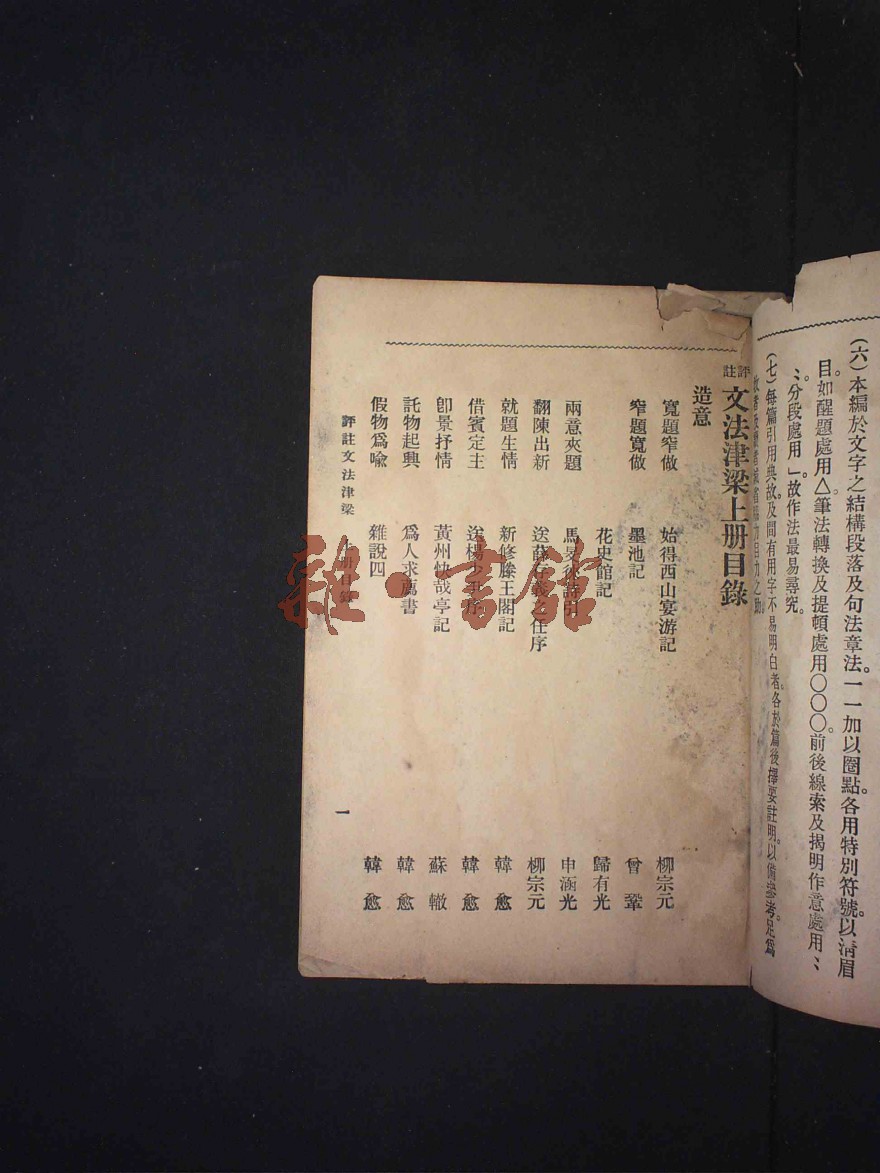 (六)本編於文字之結構段落及句法章法。一一加以圈點。各用特別符號。以清眉
目。如醒題處用△筆法轉換及提頓處用〇〇〇。前後線索及揭明作意處用ヽヽ
ヽヽ分段處用」故作法最易尋究。
(七)每篇引用典故。及間有用字不易明白者。各於篇後擇要註明。以備參考。足爲
之助
評註文法津梁上册目錄
造意
寬題窄做 始得西山宴游記 柳宗元
窄題寬做 墨池記 曾鞏
花史館記 歸有光
兩意夾題 馬旻徠詩引 申涵光
翻陳出新 送薛存義之任序 柳宗元
就題生情 新修滕王閣記 韓愈
借賓定主 送楊少尹序 韓愈
卽景抒情 黃州快哉亭記 蘇轍
託物起興 爲人求薦書 韓愈
假物爲喩 雜說四 韓愈
評註文法津梁 上册目錄 一
雜·書館